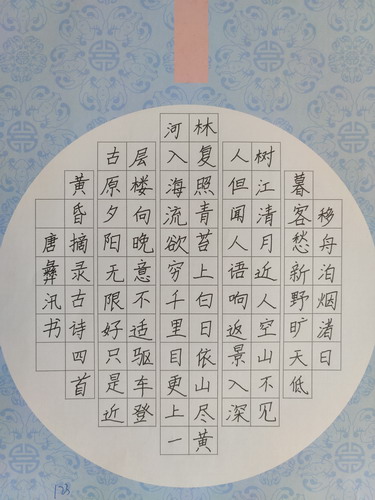 移舟泊烟渚日
暮客愁新野旷天低
树江清月近人空山不见
人但闻人语响返景入深
林复照青苔上白日依山尽黄
河入海流欲穷千里目更上一
层楼向晚意不适驱车登
古原夕阳无限好只是近
黄昏摘录古诗四首
唐彝汛书